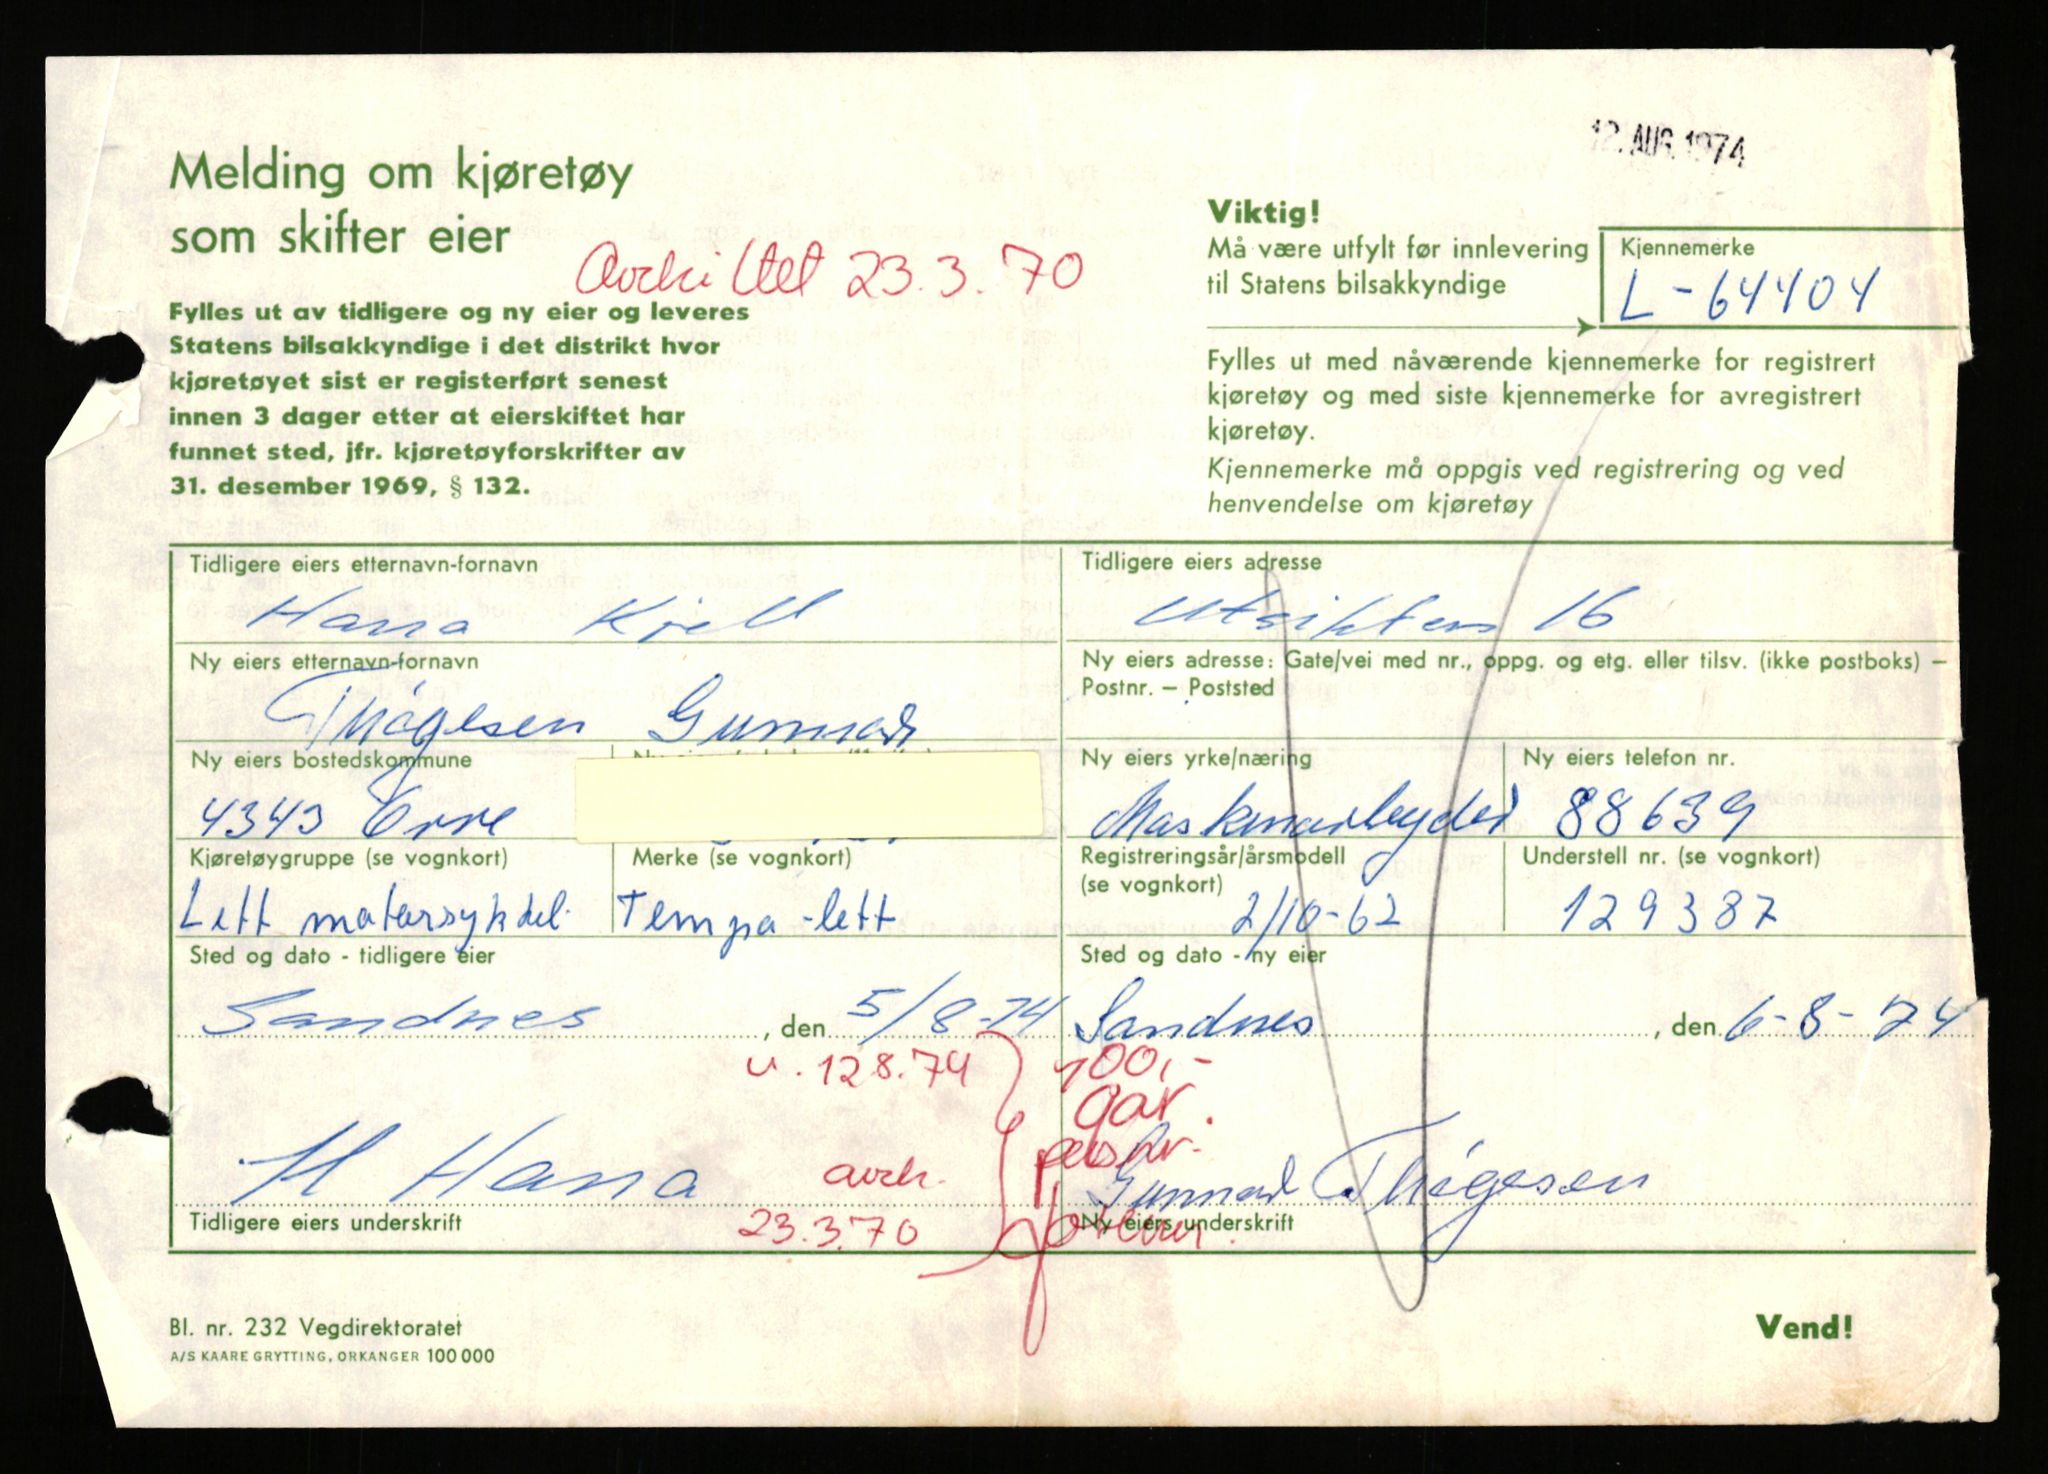 12. AUG. 1974
Melding om kjøretøy
som skifter eier
Avskiltet 23.3.70
Fylles ut av tidligere og ny eier og leveres
Statens bilsakkyndige i det distrikt hvor
kjøretøyet sist er registerført senest
innen 3 dager etter at eierskiftet har
funnet sted, jfr. kjøretøyforskrifter av
31. desember 1969, § 132.
Viktig!
Må være utfylt før innlevering
til Statens bilsakkyndige
Kjennemerke
L-64404
Fylles ut med nåværende kjennemerke for registrert
kjøretøy og med siste kjennemerke for avregistrert
kjøretøy.
Kjennemerke må oppgis ved registrering og ved
henvendelse om kjøretøy
Tidligere eiers etternavn-fornavn
Hana Kjell
Tidligere eiers adresse
Utsikten 16
Ny eiers etternavn-fornavn
Thögesen Gunnar
Ny eiers adresse: Gate/vei med nr., oppg. og etg. eller tilsv. (ikke postboks) –
Postnr. – Poststed
Ny eiers bostedskommune
4343 Orre
Ny eiers yrke/næring
Maskinarbeyder
Ny eiers telefon nr.
88639
Kjøretøygruppe (se vognkort)
Lett motorsykkel
Merke (se vognkort)
Tempo-lett
Registreringsår/årsmodell
(se vognkort)
2/10-62
Understell nr. (se vognkort)
129387
Sted og dato - tidligere eier
Sandnes, den 5/8-74
Sted og dato - ny eier
Sandnes, den 6-8-74
u. 128.74
100,-
gar.
H Hana
avsk.
23.3.70
Gunnar Thögesen
Tidligere eiers underskrift
Ny eiers underskrift
Bl. nr. 232 Vegdirektoratet
A/S KAARE GRYTTING, ORKANGER 100 000
Vend!